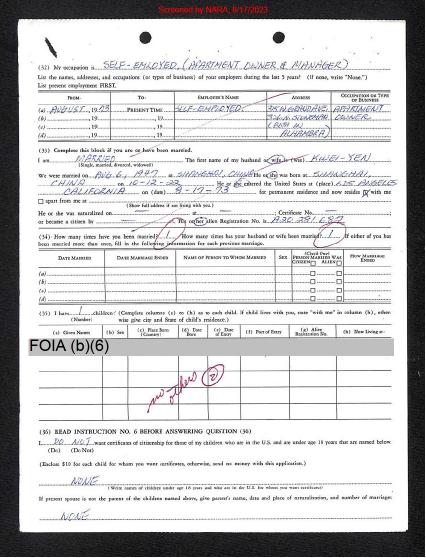 Screened by NARA, 8/17/2023
(32) My occupation is SELF-EMLOYED, (APARTMENT OWNER & MANAGER)
List the names, addresses, and occupations (or types of business) of your employers during the last 5 years (If none, write "None.")
List present employment FIRST.
FROM- TO- EMPLOYER'S NAME ADDRESS OCCUPATION OR TYPE OF BUSINESS
(a) AUGUST, 1973 PRESENT TIME SELF-EMPLOYED APARTMENT
(b) , 19 , 19 OWNER
(c) , 19 , 19 (BOTH IN
(d) , 19 , 19 ALHAMBRA)
(33) Complete this block if you are or have been married.
I am MARRIED The first name of my husband or wife is (was) KWEI-YEN
(Single; married; divorced; widowed)
We were married on AUG. 6, 1947 at SHANGHAI, CHINA He or she was born at SHANGHAI,
CHINA on 10-12-22 He or she entered the United States at (place) LOS ANGELES
CALIFORNIA on (date) 8-17-73 for permanent residence and now resides with me
apart from me at
(Show full address if not living with you.)
He or she was naturalized on at Certificate No.
or became a citizen by His or her Alien Registration No. is A30 791 687
(34) How many times have you been married? 1 How many times has your husband or wife been married? 1 If either of you has
been married more than once, fill in the following information for each previous marriage.
DATE MARRIED DATE MARRIAGE ENDED NAME OF PERSON TO WHOM MARRIED SEX (Check One) PERSON MARRIED WAS CITIZEN ALIEN HOW MARRIAGE ENDED
(a)
(b)
(c)
(d)
(35) I have 1 children: (Complete columns (a) to (h) as to each child. If child lives with you, state "with me" in column (h), other-
(Number) wise give city and State of child's residence.)
(a) Given Names (b) Sex (c) Place Born (Country) (d) Date Born (e) Date of Entry (f) Port of Entry (g) Alien Registration No. (h) Now Living at-
FOIA (b)(6)
no others 2
(36) READ INSTRUCTION NO. 6 BEFORE ANSWERING QUESTION (36)
I DO NOT want certificates of citizenship for those of my children who are in the U.S. and are under age 18 years that are named below.
(Do) (Do Not)
(Enclose $10 for each child for whom you want certificates, otherwise, send no money with this application.)
NONE
(Write names of children under age 18 years and who are in the U.S. for whom you want certificates)
If present spouse is not the parent of the children named above, give parent's name, date and place of naturalization, and number of marriages.
NONE